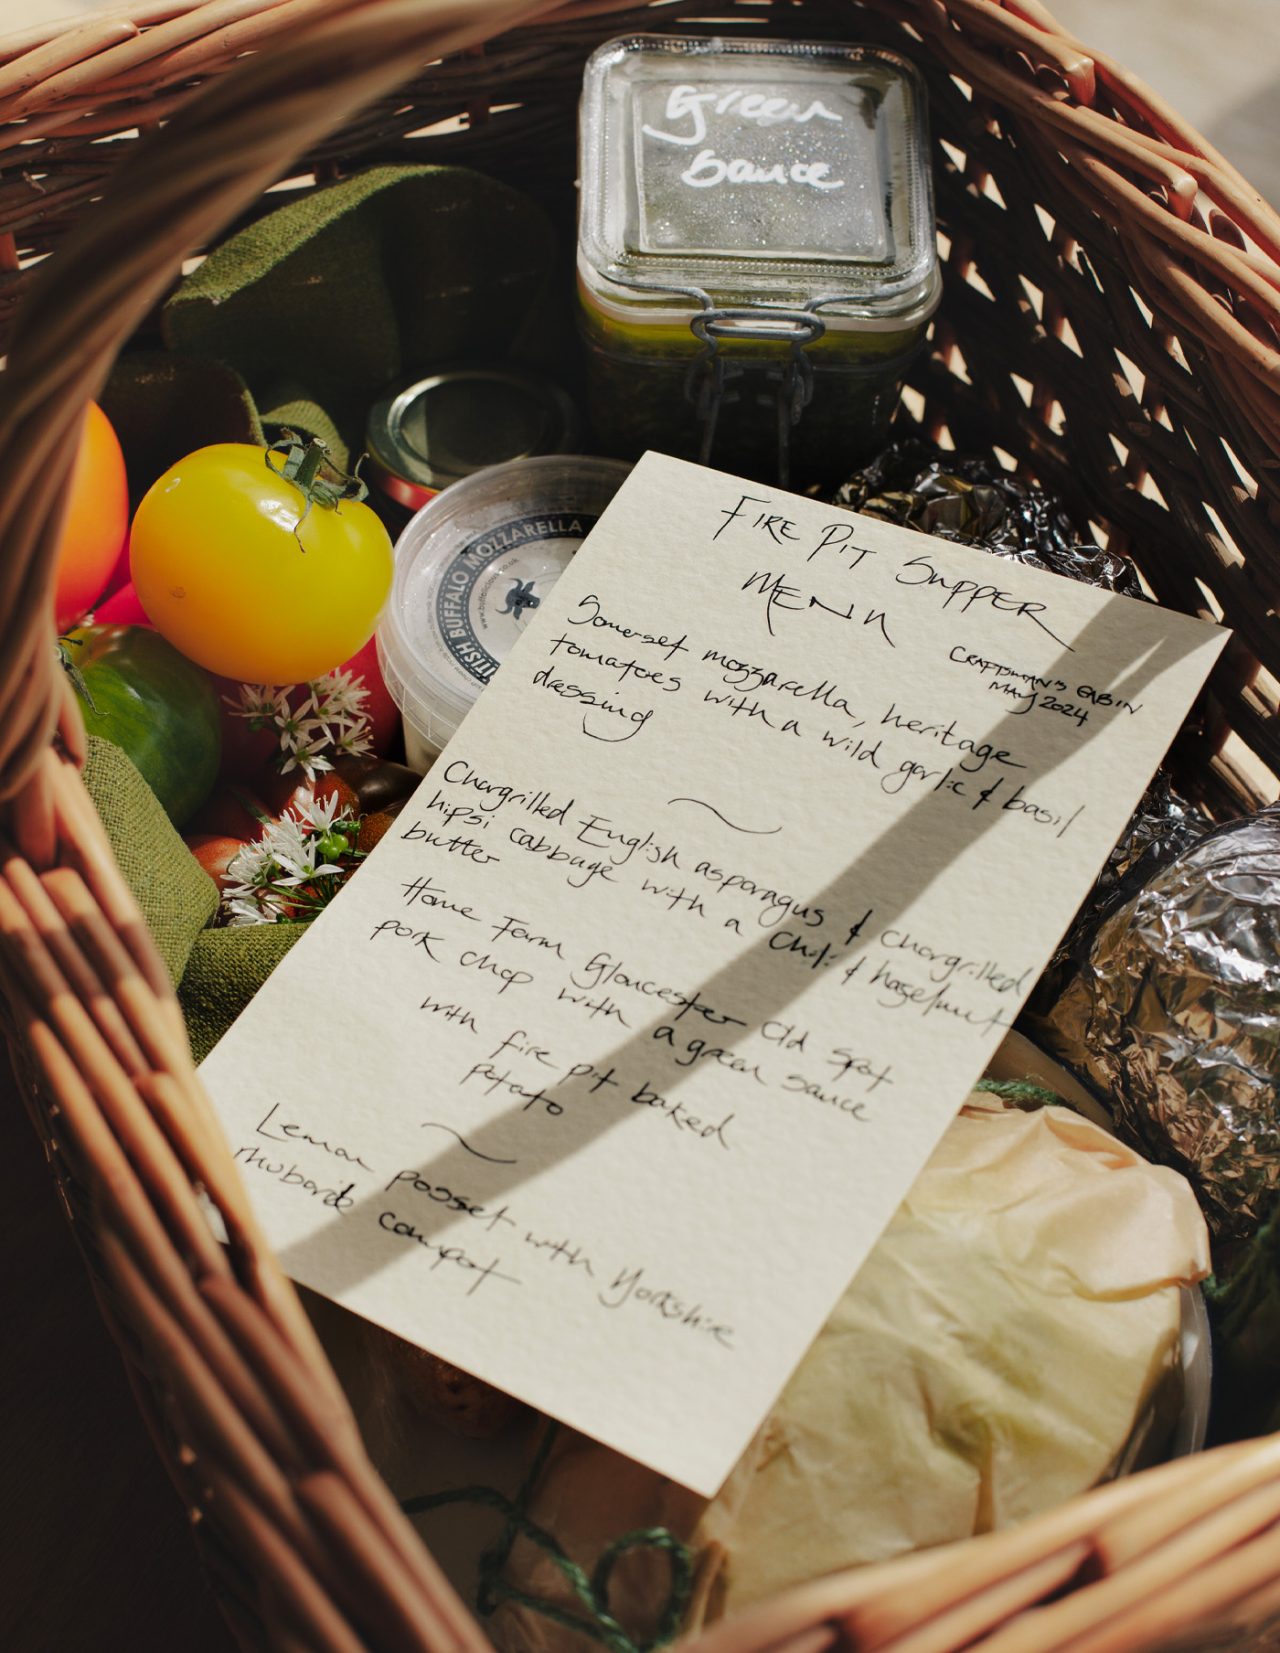 Green
Sauce
BRITISH BUFFALO MOZZARELLA
FIRE PIT SUPPER
MENU
CRAFTSMAN'S CABIN
MAY 2024
Somerset mozzarella, heritage
tomatoes with a wild garlic & basil
dressing
Chargrilled English asparagus & chargrilled
hipsi cabbage with a chili & hazelnut
butter
Home Farm Gloucester Old Spot
pork chop with a green sauce
with fire pit baked
potato
Lemon posset with Yorkshire
rhubarb compot